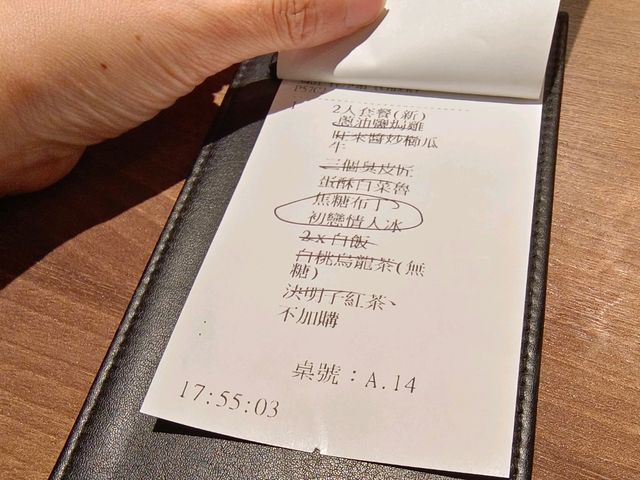 2人套餐(新)
蔥油鹽焗雞
味米醬炒櫛瓜
牛
三個臭皮匠
蛋酥白菜魯
焦糖布丁、
初戀情人冰
2 x 白飯
白桃烏龍茶(無
糖)
決明子紅茶、
不加購
桌號：A.14
17:55:03